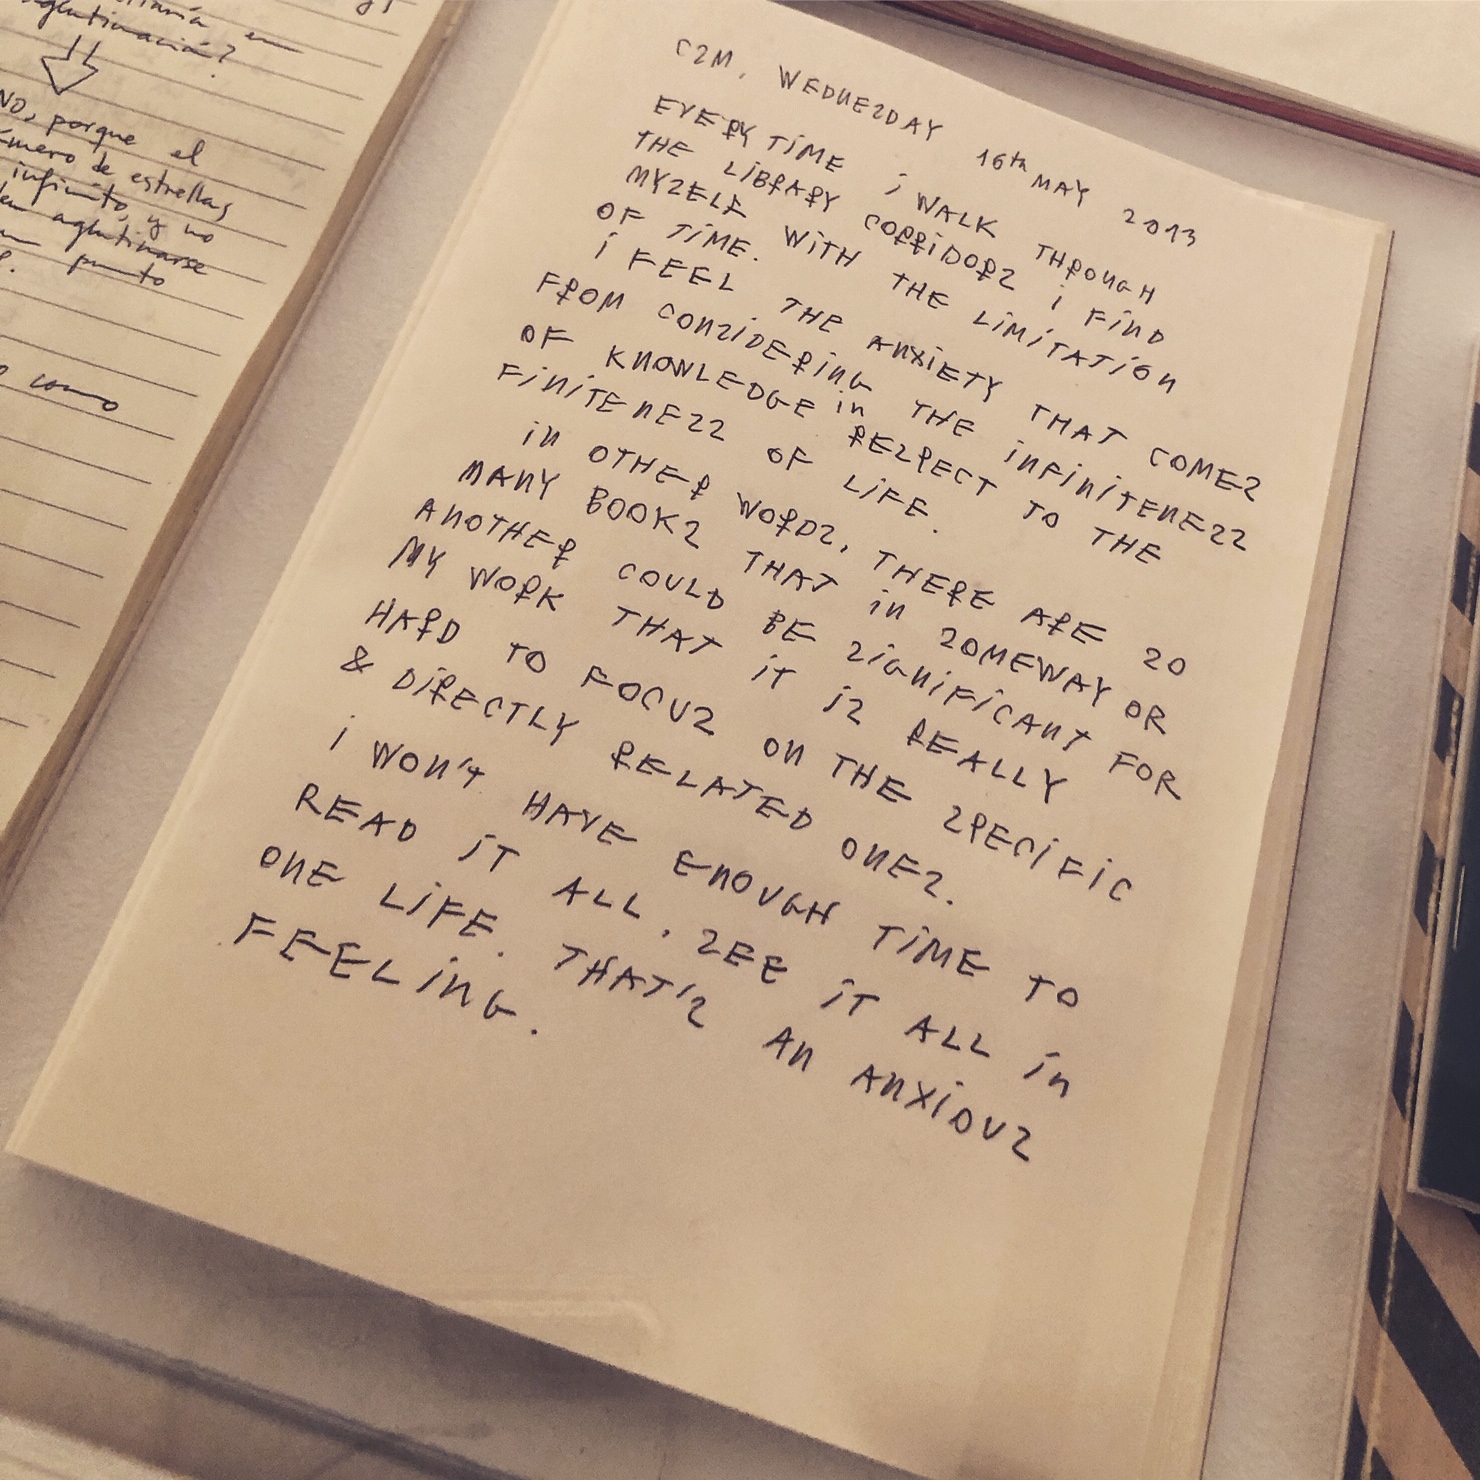 en
aglutinación?
NO, porque el
de estrellas
infinito, y no
aglutinarse
punto
como
CSM, WEDNESDAY 16th MAY 2013
EVERYTIME i WALK THROUGH
THE LIBRARY CORRIDORS i FIND
MYSELF WITH THE LIMITATION
OF TIME.
i FEEL THE ANXIETY THAT COMES
FROM CONSIDERING THE INFINITENESS
OF KNOWLEDGE in RESPECT TO THE
FINITENESS OF LIFE.
IN OTHER WORDS, THERE ARE SO
MANY BOOKS THAT in SOMEWAY OR
ANOTHER COULD BE SIGNIFICANT FOR
MY WORK THAT IT IS REALLY
HARD TO FOCUS ON THE SPECIFIC
& DIRECTLY RELATED ONES.
i WON'T HAVE ENOUGH TIME TO
READ IT ALL, SEE IT ALL in
ONE LIFE. THAT'S AN ANXIOUS
FEELING.